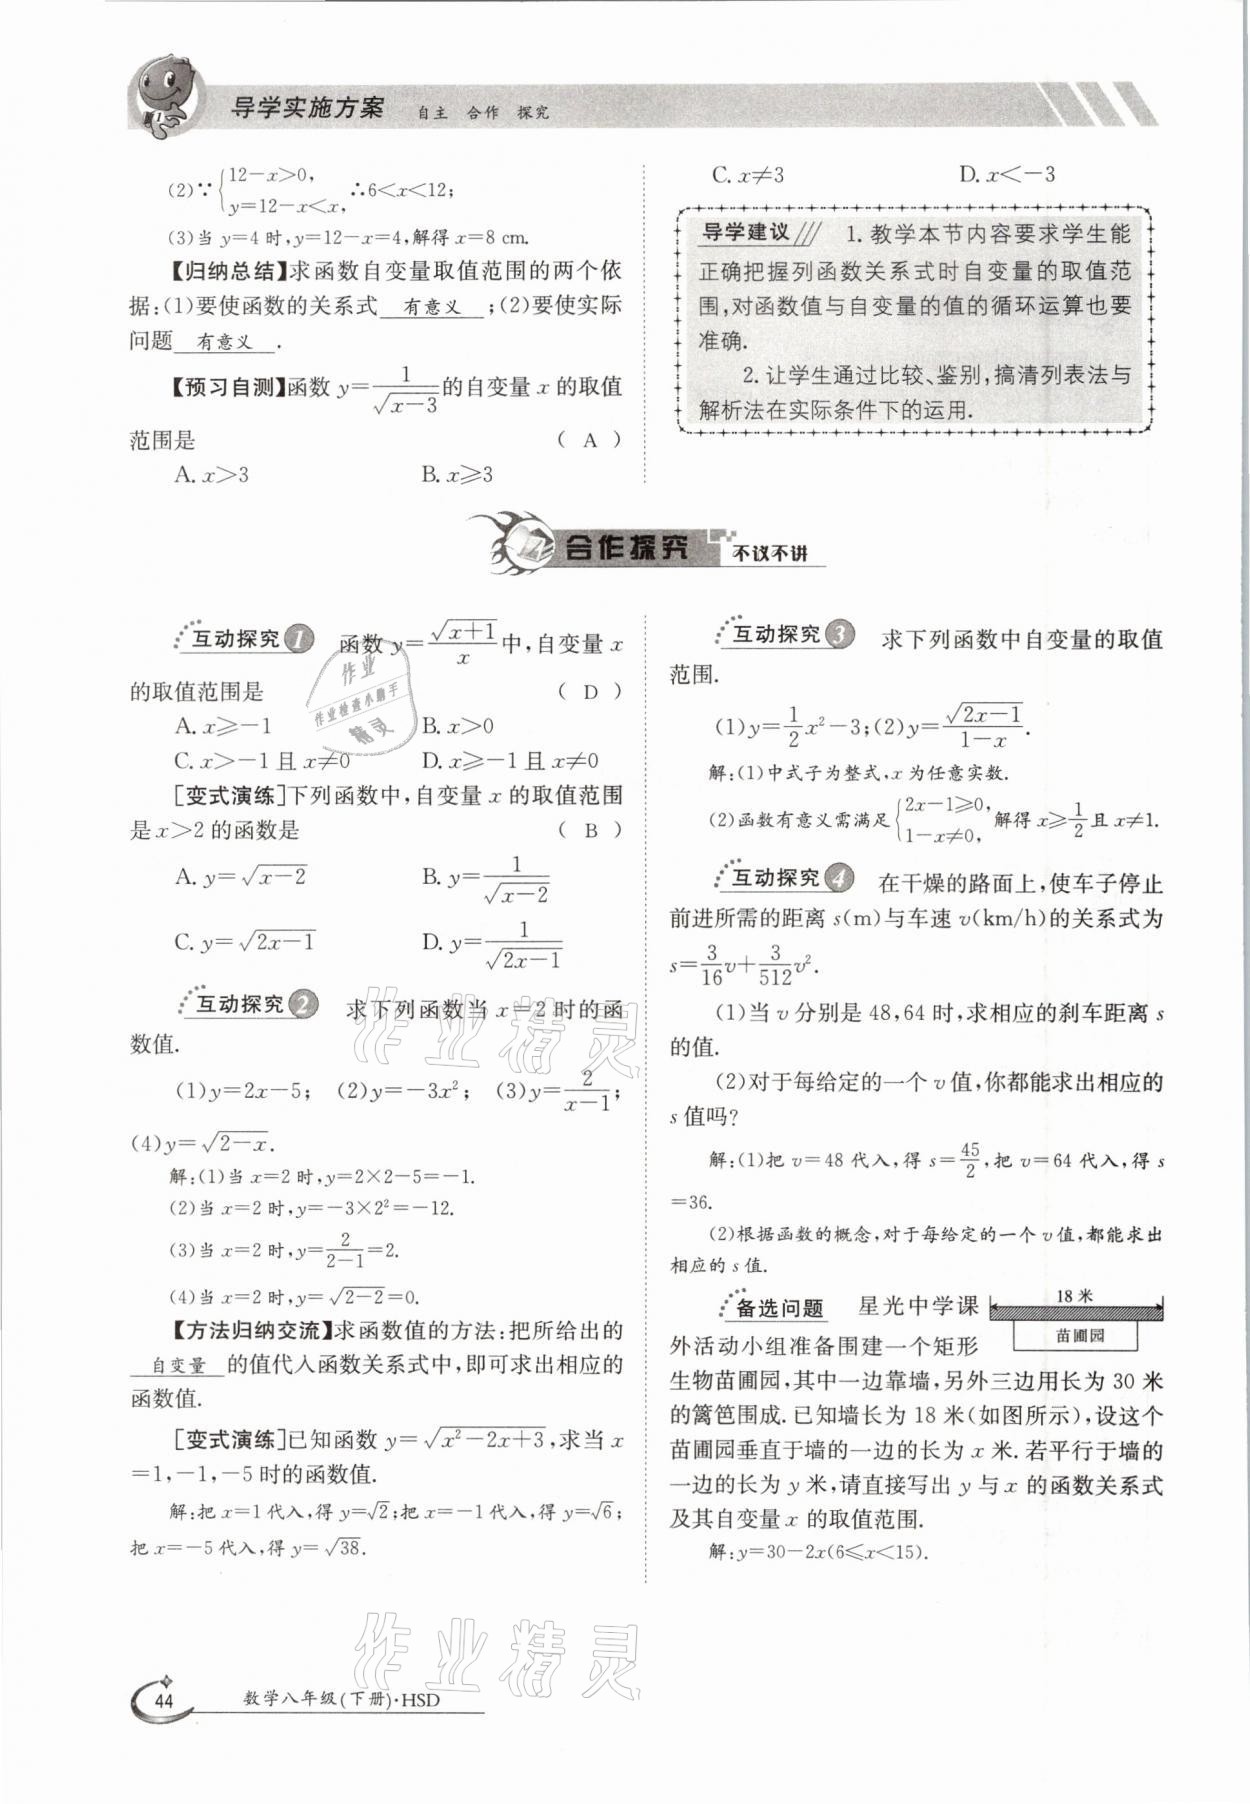 导学实施方案 自主 合作 探究
(2)∵{12-x>0, y=12-x<x, ∴6<x<12;
(3)当 y=4 时,y=12-x=4,解得 x=8 cm.
【归纳总结】求函数自变量取值范围的两个依
据:(1)要使函数的关系式 有意义 ;(2)要使实际
问题 有意义 .
【预习自测】函数 y=1/√(x-3) 的自变量 x 的取值
范围是 ( A )
A. x>3 B. x≥3
C. x≠3 D. x<-3
导学建议 1. 教学本节内容要求学生能
正确把握列函数关系式时自变量的取值范
围,对函数值与自变量的值的循环运算也要
准确.
2. 让学生通过比较、鉴别,搞清列表法与
解析法在实际条件下的运用.
合作探究 不议不讲
互动探究 1 函数 y=√(x+1)/x 中,自变量 x
的取值范围是 ( D )
A. x≥-1 B. x>0
C. x>-1 且 x≠0 D. x≥-1 且 x≠0
[变式演练]下列函数中,自变量 x 的取值范围
是 x>2 的函数是 ( B )
A. y=√(x-2) B. y=1/√(x-2)
C. y=√(2x-1) D. y=1/√(2x-1)
互动探究 2 求下列函数当 x=2 时的函
数值.
(1)y=2x-5; (2)y=-3x²; (3)y=2/(x-1);
(4)y=√(2-x).
解:(1)当 x=2 时,y=2×2-5=-1.
(2)当 x=2 时,y=-3×2²=-12.
(3)当 x=2 时,y=2/(2-1)=2.
(4)当 x=2 时,y=√(2-2)=0.
【方法归纳交流】求函数值的方法:把所给出的
自变量 的值代入函数关系式中,即可求出相应的
函数值.
[变式演练]已知函数 y=√(x²-2x+3),求当 x
=1,-1,-5 时的函数值.
解:把 x=1 代入,得 y=√2;把 x=-1 代入,得 y=√6;
把 x=-5 代入,得 y=√38.
互动探究 3 求下列函数中自变量的取值
范围.
(1)y=1/2x²-3;(2)y=√(2x-1)/(1-x).
解:(1)中式子为整式,x 为任意实数.
(2)函数有意义需满足{2x-1≥0, 1-x≠0, 解得 x≥1/2 且 x≠1.
互动探究 4 在干燥的路面上,使车子停止
前进所需的距离 s(m)与车速 v(km/h)的关系式为
s=3/16v+3/512v².
(1)当 v 分别是 48,64 时,求相应的刹车距离 s
的值.
(2)对于每给定的一个 v 值,你都能求出相应的
s 值吗?
解:(1)把 v=48 代入,得 s=45/2,把 v=64 代入,得 s
=36.
(2)根据函数的概念,对于每给定的一个 v 值,都能求出
相应的 s 值.
备选问题 星光中学课
外活动小组准备围建一个矩形
18 米
苗圃园
生物苗圃园,其中一边靠墙,另外三边用长为 30 米
的篱笆围成.已知墙长为 18 米(如图所示),设这个
苗圃园垂直于墙的一边的长为 x 米.若平行于墙的
一边的长为 y 米,请直接写出 y 与 x 的函数关系式
及其自变量 x 的取值范围.
解:y=30-2x(6≤x<15).
作业
作业检查小助手
精灵
作业精灵
作业精灵
44 数学八年级(下册)·HSD